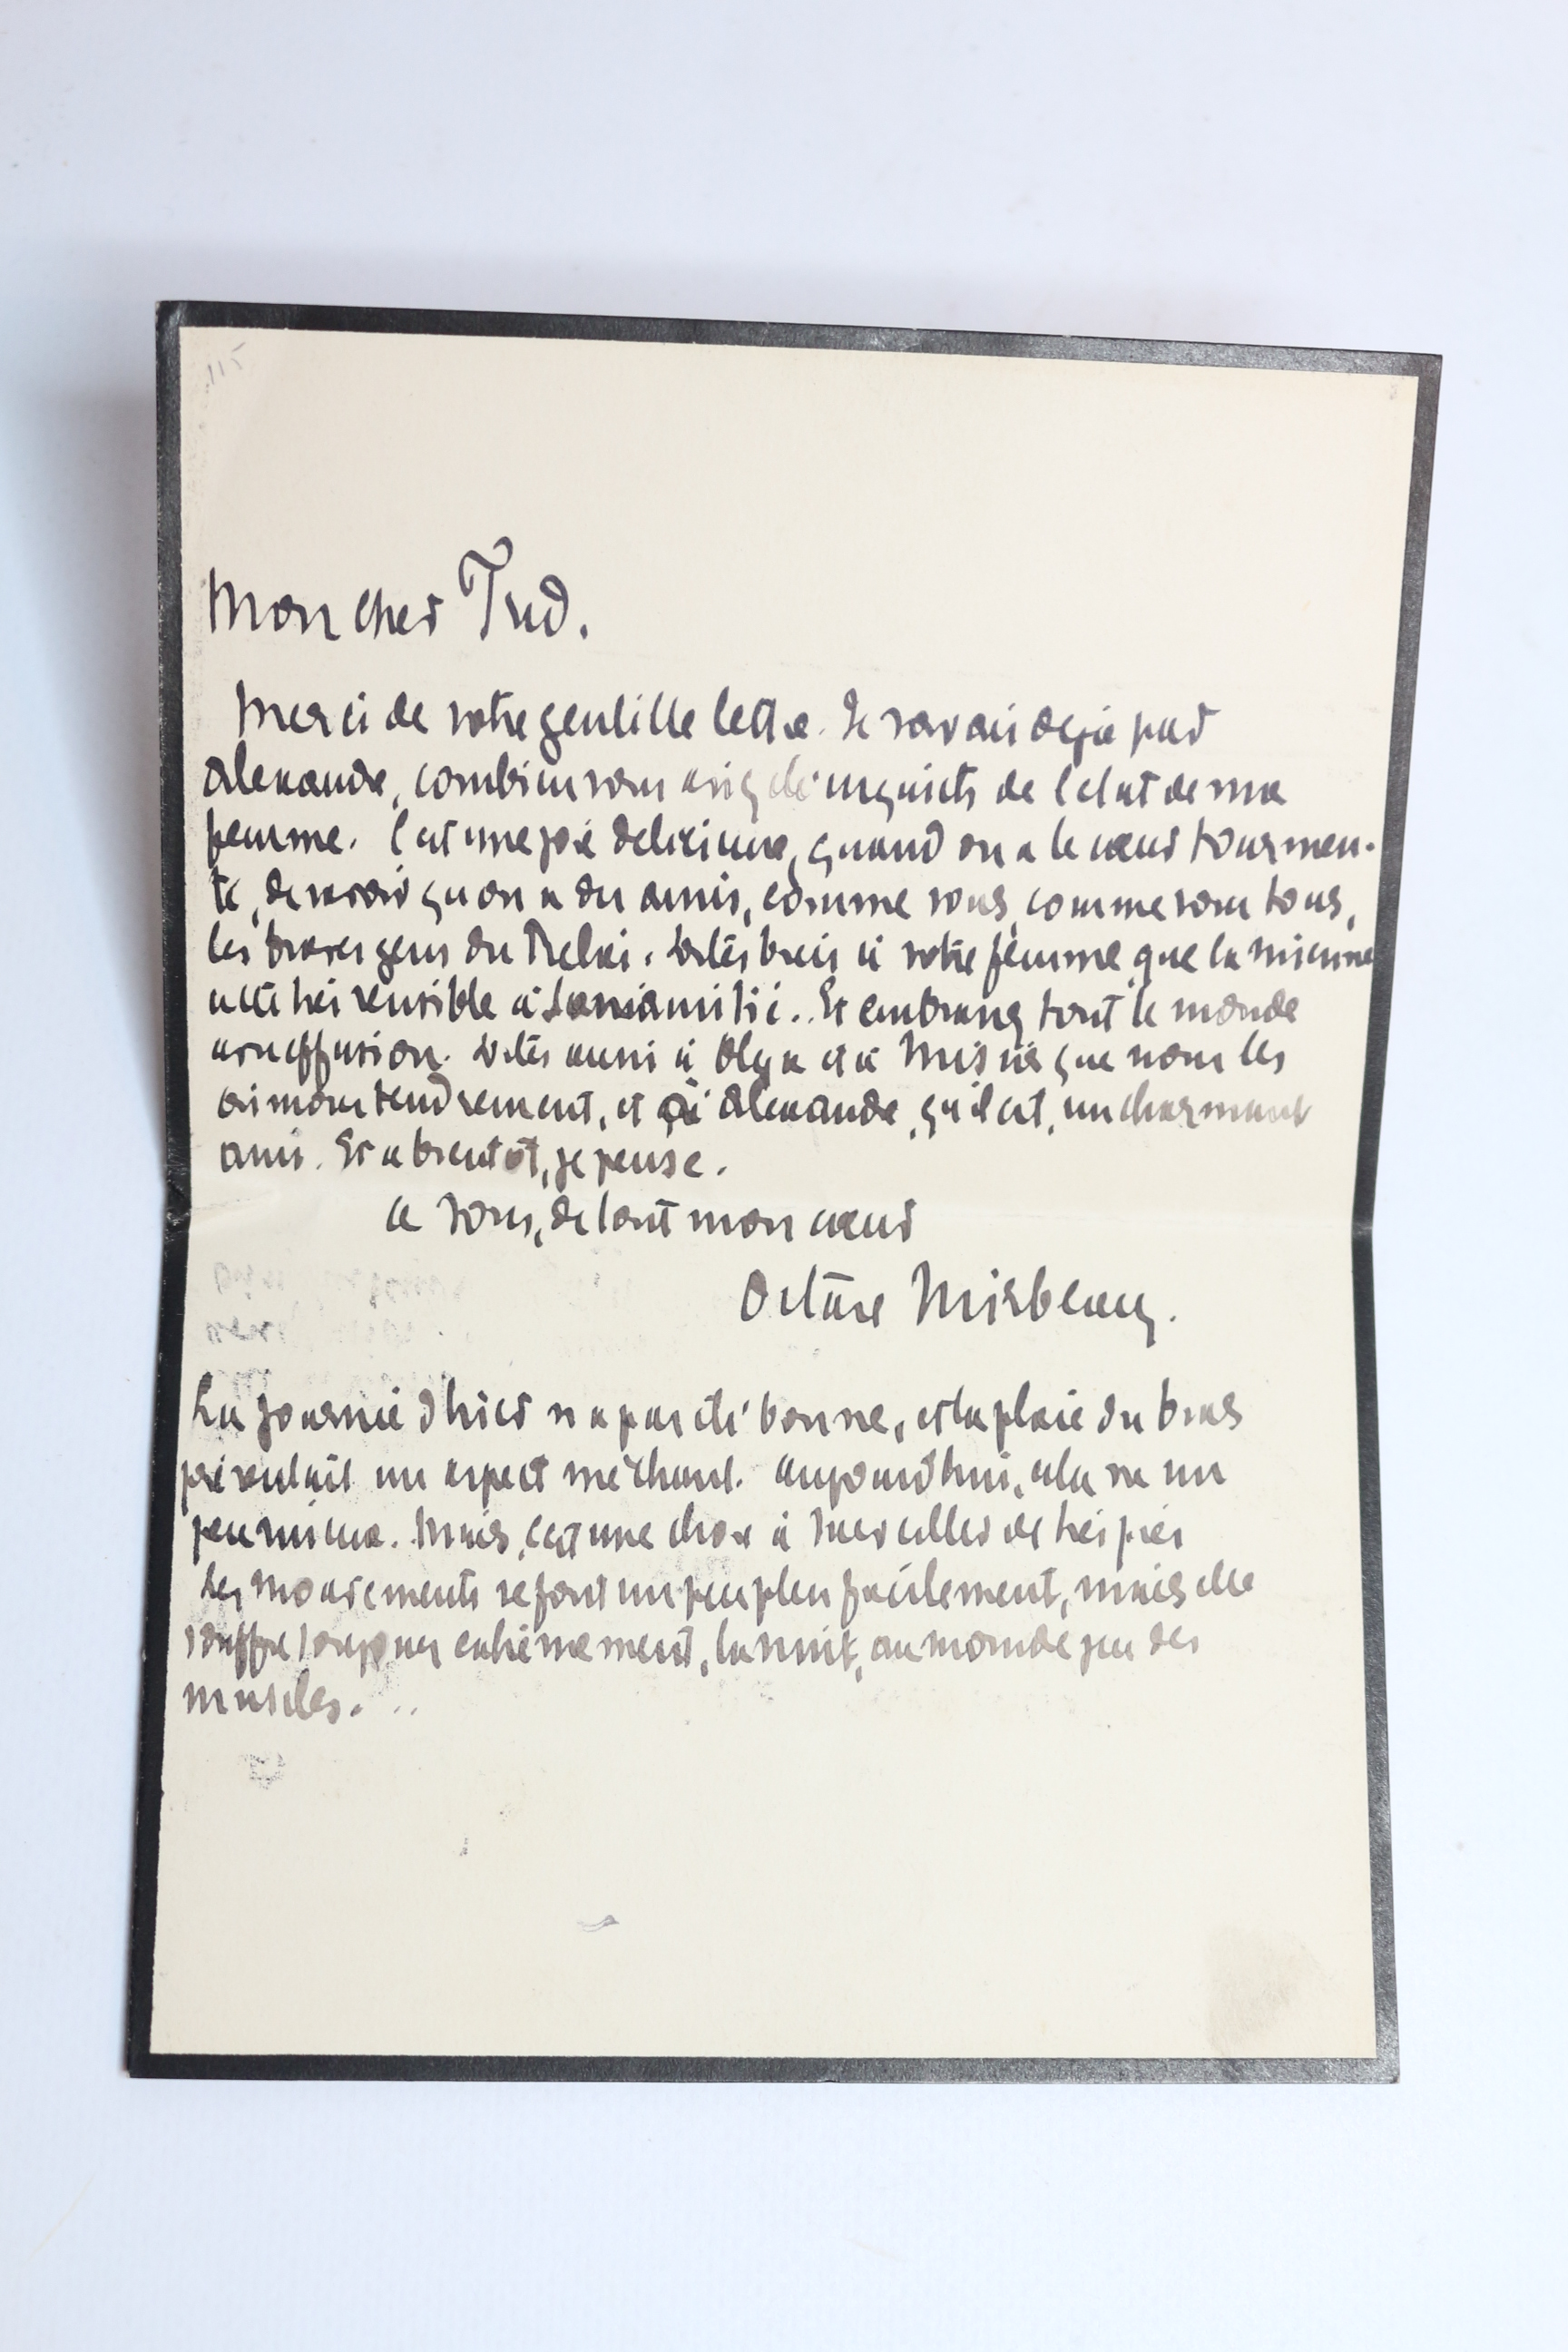 115
Mon cher Fred.
Merci de votre gentille lettre. Je savais deja par
Alexandre, combien vous aviez été inquiets de l'etat de ma
femme. C'est une joie delicieuse, quand on a le cœur tourmen-
té, de savoir qu'on a des amis, comme vous, comme vous tous,
les braves gens du Relai. Dites bien à votre femme, que la mienne
a été très sensible à son amitié. Et embrassez tout le monde
avec effusion. Dites aussi à Olga et à Misia que nous les
aimons tendrement, et à Alexandre, qu'il est, un charmant
ami. Et a bientôt, je pense.
a vous, de tout mon cœur
Octave Mirbeau.
La journée d'hier n'a pas été bonne, et la plaie du bras
présentait un aspect méchant. Aujourd'hui, cela va un
peu mieux. Mais, c'est une chose à surveiller de très près
Les mouvements se font un peu plus facilement, mais elle
souffre toujours extrêmement, la nuit, au moindre jeu des
muscles. ..